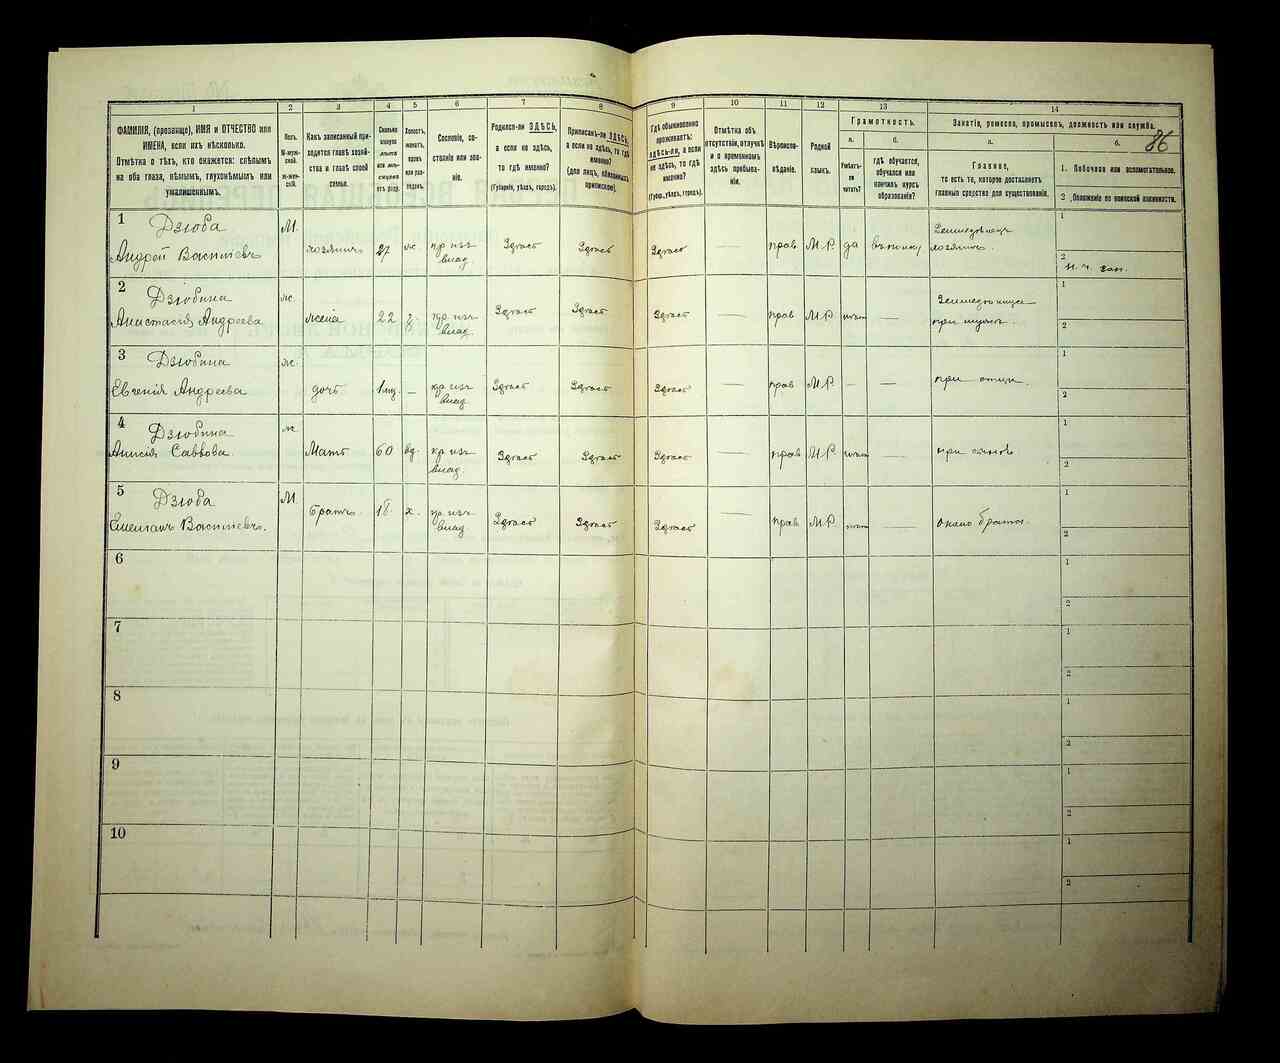 86
1
2
3
4
5
6
7
8
9
10
11
12
13
14
ФАМИЛІЯ, (прозвище), ИМЯ и ОТЧЕСТВО или
ИМЕНА, если ихъ нѣсколько.
Отмѣтка о тѣхъ, кто окажется: слѣпымъ
на оба глаза, нѣмымъ, глухонѣмымъ или
умалишеннымъ.
Полъ.
М-муж-
ской.
ж-жен-
скій.
Какъ записанный при-
ходится главѣ хозяй-
ства и главѣ своей
семьи.
Сколько
минуло
лѣтъ
или мѣ-
сяцевъ
отъ роду.
Холостъ,
женатъ,
вдовъ
или раз-
веденъ.
Сословіе, со-
стояніе или зва-
ніе.
Родился-ли ЗДѢСЬ,
а если не здѣсь,
то гдѣ именно?
(Губернія, уѣздъ, городъ).
Приписанъ-ли ЗДѢСЬ,
а если не здѣсь, то гдѣ
именно?
(для лицъ, обязанныхъ
припискою).
Гдѣ обыкновенно
проживаетъ:
здѣсь-ли, а если
не здѣсь, то гдѣ
именно?
(Губерн., уѣздъ, городъ).
Отмѣтка объ
отсутствіи, отлучкѣ
и о временномъ
здѣсь пребыва-
ніи.
Вѣроиспо-
вѣданіе.
Родной
языкъ.
Грамотность.
а.
Умѣетъ-
ли
читать?
б.
гдѣ обучается,
обучался или
кончилъ курсъ
образованія?
Занятіе, ремесло, промыселъ, должность или служба.
а.
Главное,
то есть то, которое доставляетъ
главныя средства для существованія.
б.
1. Побочное или вспомогательное.
2. Положеніе по воинской повинности.
1 Дзюба
Андрей Васильевъ
М.
хозяинъ
27
ж
кр изъ
влад.
Здѣсь
Здѣсь
Здѣсь
—
прав
М.Р.
да
Земледѣлецъ
хозяинъ.
1
2
2 Дзюбина
Анастасія Андреева
ж.
жена
22
з.
кр изъ
влад.
Здѣсь
Здѣсь
Здѣсь
—
прав
М.Р.
нѣтъ
—
Земледѣлица
при мужѣ.
1
2
3 Дзюбина
Евгенія Андреева
ж.
дочь
1 мц.
—
кр изъ
влад.
Здѣсь
Здѣсь
Здѣсь
—
прав
М.Р.
—
—
при отцѣ.
1
2
4 Дзюбина
Анисія Саввова
ж
Мать
60
вд.
кр изъ
влад.
Здѣсь
Здѣсь
Здѣсь
—
прав
М.Р.
нѣтъ
—
при сынѣ
1
2
5 Дзюба
Емельянъ Васильевъ.
М
Братъ.
18
х.
кр изъ
влад.
Здѣсь
Здѣсь
Здѣсь
—
прав.
М.Р.
нѣтъ
—
около брата.
1
2
6
1
2
7
1
2
8
1
2
9
1
2
10
1
2